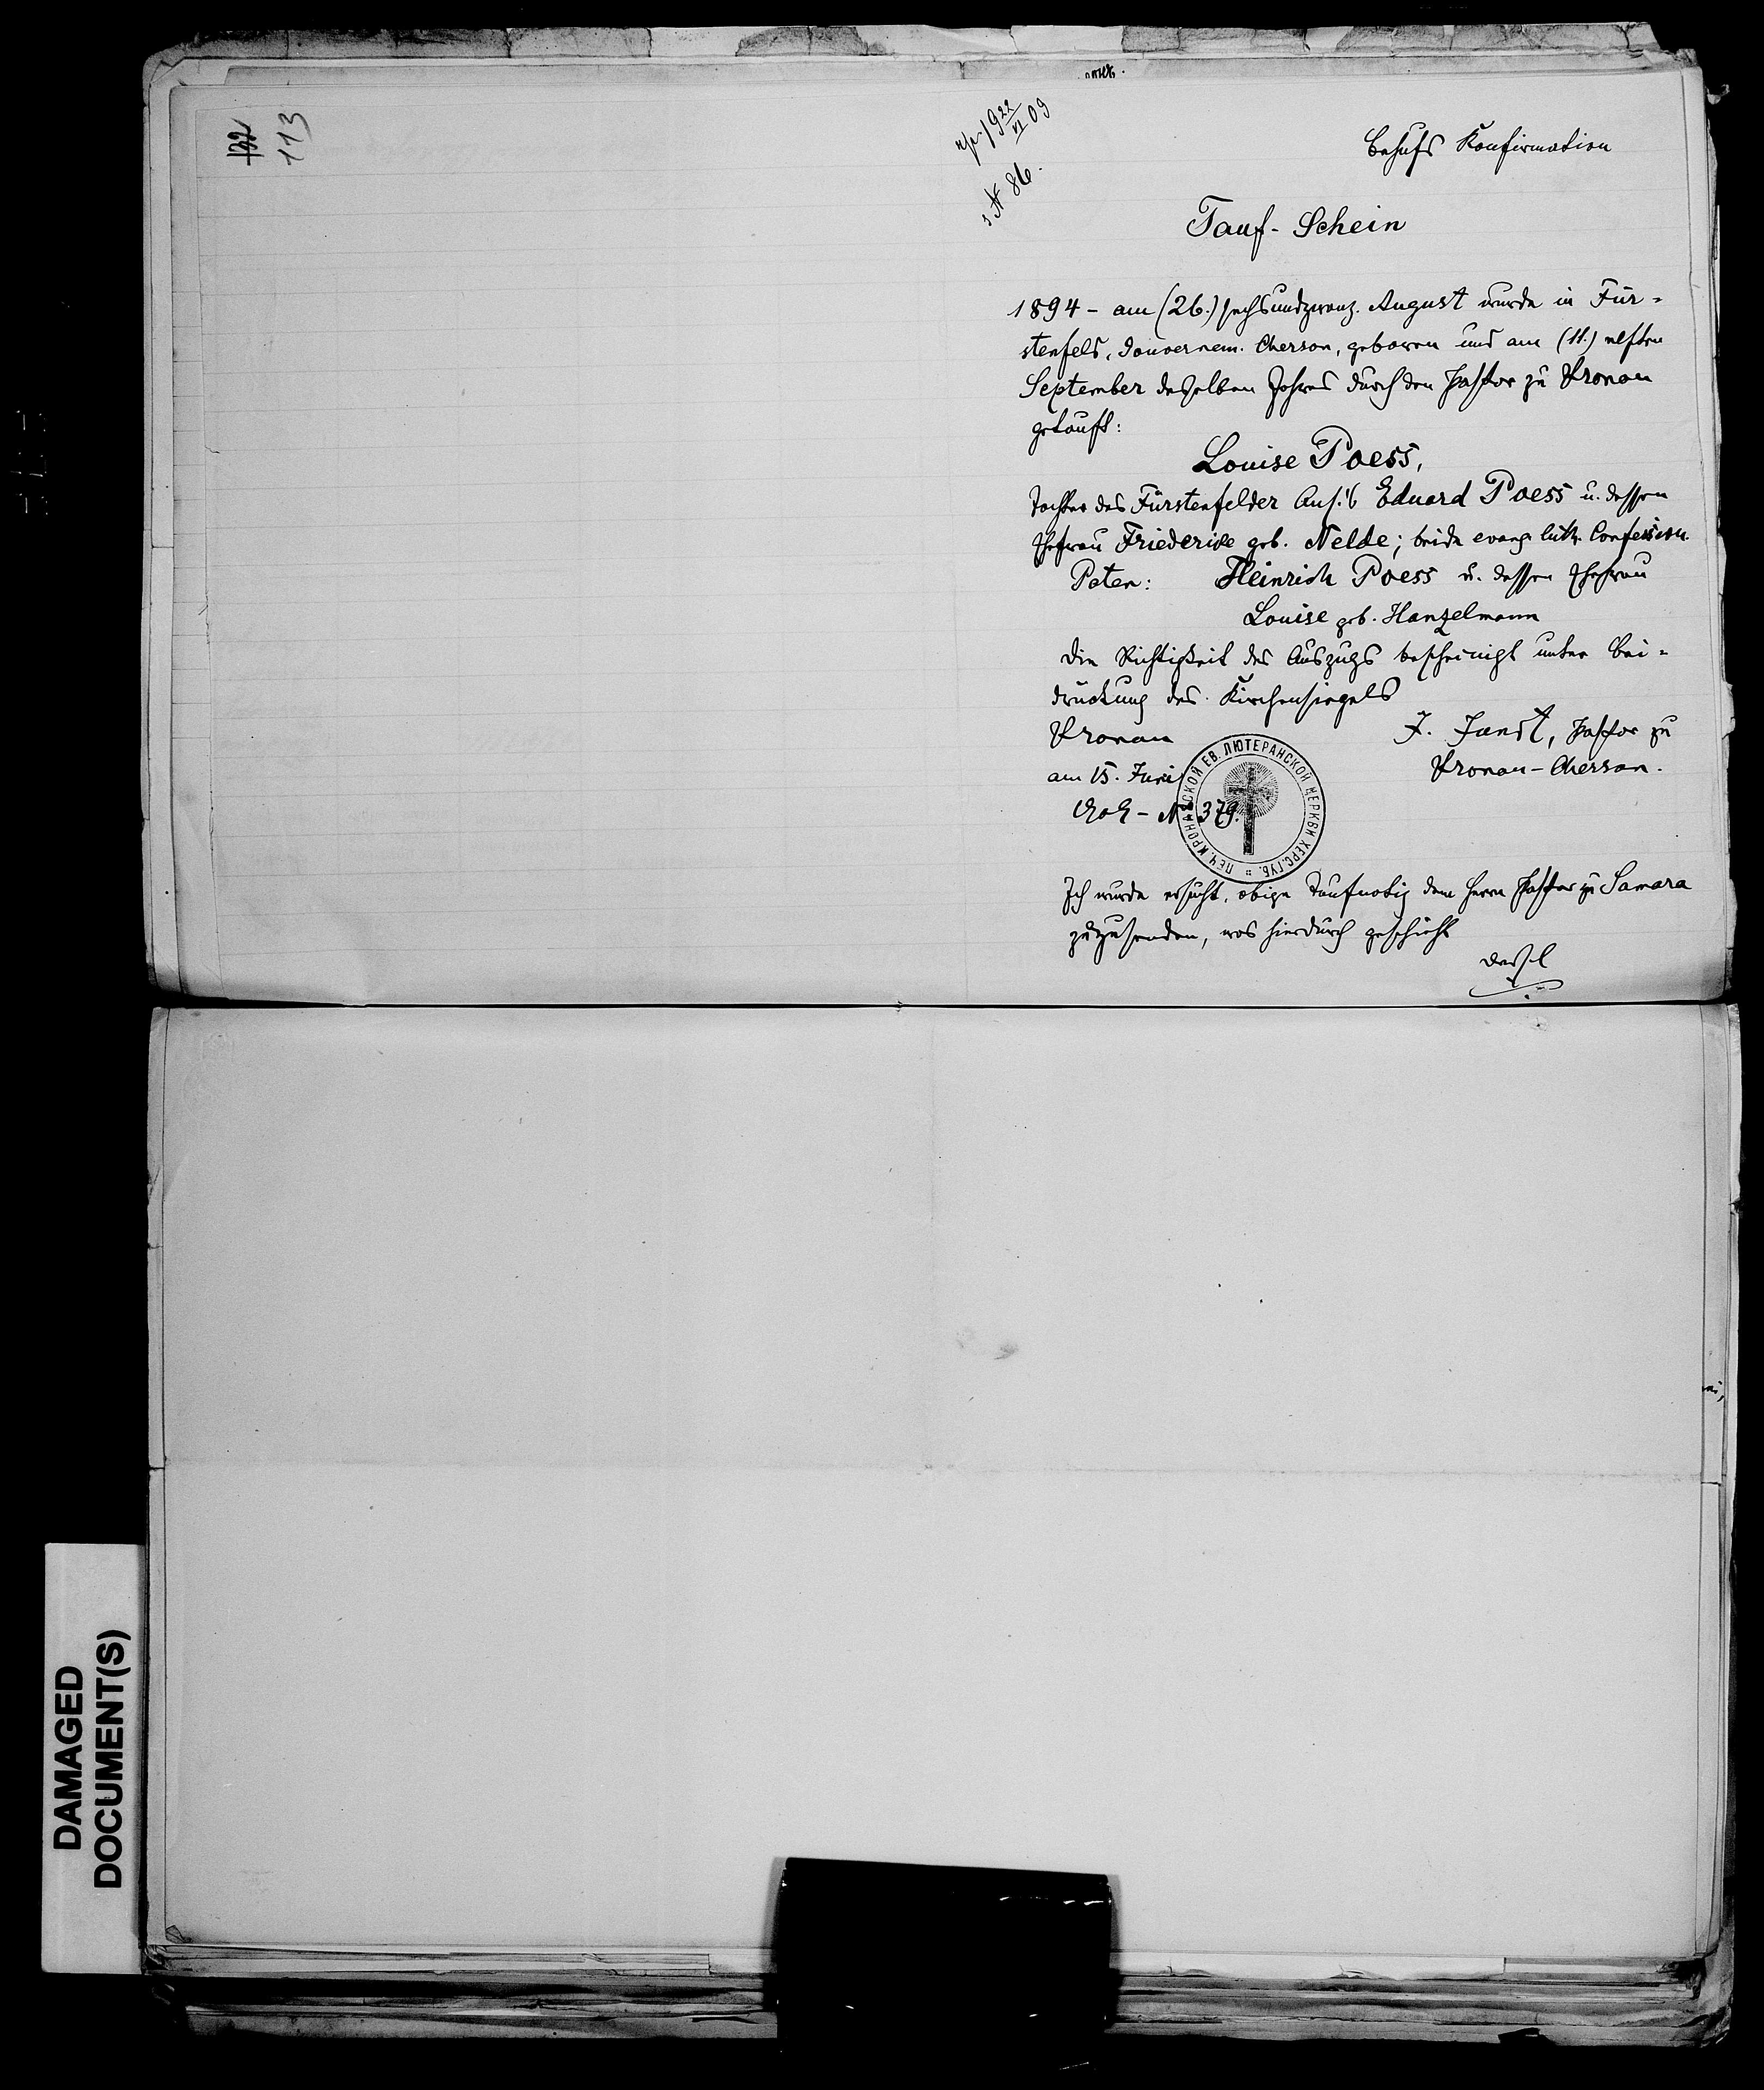 132
113
19 22/VI 09
№ 86.
behufs Konfirmation
Tauf-Schein
1894 - am (26.) sechsundzwanz. August wurde in Für-
stenfeld, Gouvernem. Cherson, geboren und am (11.) elften
September desselben Jahres durch den Pastor zu Kronau
getauft:
Louise Poess,
Tochter des Fürstenfelder Ans. Eduard Poess u. dessen
Ehefrau Friederike geb. Nelde; beide evang. luth. Confession.
Paten: Heinrich Poess u. dessen Ehefrau
Louise geb. Hanzelmann
Die Richtigkeit des Auszugs bescheinigt unter Bei-
drückung des Kirchensiegels
Kronau J. Jandt, Pastor zu
am 15. Juni Kronau-Cherson.
№ 379.
ПЕЧ. КРОНАУСКОЙ ЕВ. ЛЮТЕРАНСКОЙ ЦЕРКВИ ХЕРС. ГУБ.
Ich wurde ersucht, obige Taufnotiz dem Herrn Pastor zu Samara
zuzusenden, was hierdurch geschieht
ders.
DAMAGED
DOCUMENT(S)